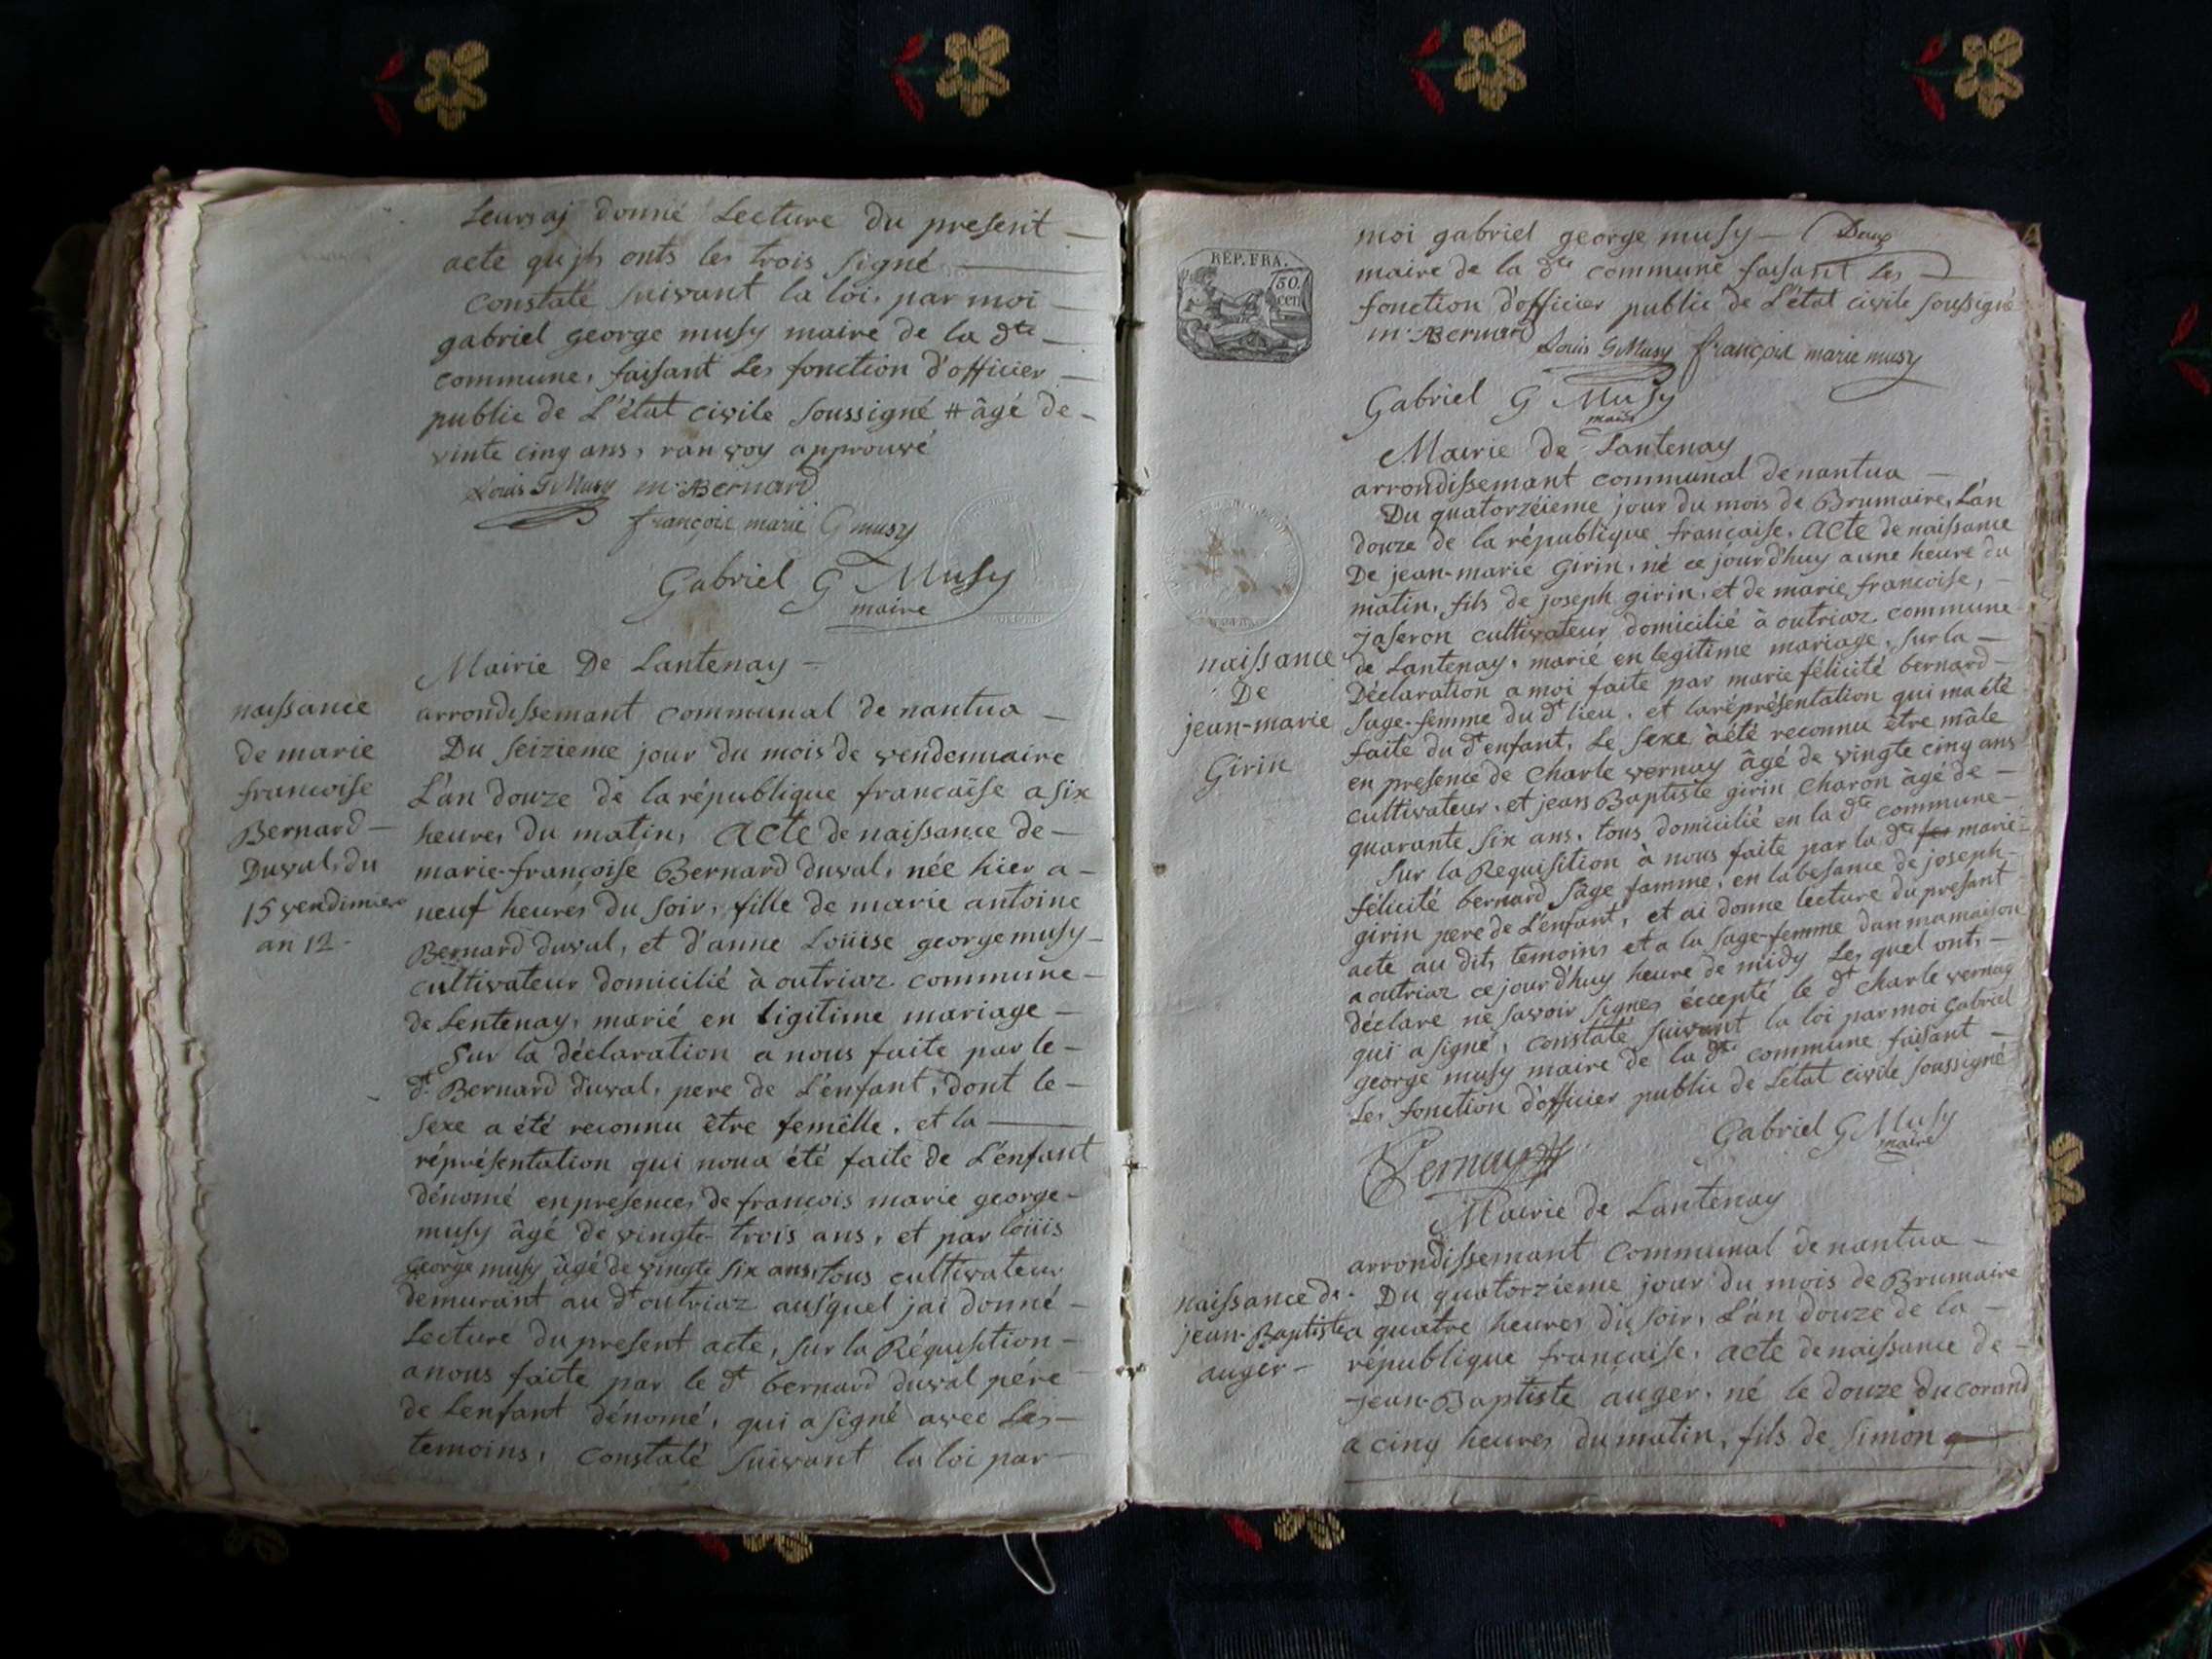 Leurs aj donné Lecture du present
acte qu jls onts les trois signé
Constaté suivant la loi, par moi
gabriel george musy maire de la dte
commune, faisant Les fonction d'officier
public de L'état civile soussigné # âgé de
vinte cinq ans, ranvoy approuvé
Louis G Musy m. A Bernard
françois marie G musy
Gabriel G Musy
maire
Mairie De Lantenay
naissance
de marie
francoise
Bernard
Duval, du
15 vendimiere
an 12.
arrondissemant communal de nantua
Du seizieme jour du mois de vendemiaire
L'an douze de la république francaise a six
heures du matin, Acte de naissance de
marie-françoise Bernard duval, née hier a
neuf heures du soir, fille de marie antoine
Bernard duval, et d'anne Loüise george musy
cultivateur domicilié à outriaz commune
de Lentenay, marié en ligitime mariage
Sur la déclaration a nous faite par le
dt Bernard duval, pere de L'enfant, dont le
sexe a été reconnu être femêlle, et la
réprésentation qui nous été faite de L'enfant
dénomé en presences de francois marie george
musy âgé de vingte trois ans, et par loüis
George musy âgé de vingte six ans, tous cultivateur
demurant au dt outriaz ausquel jai donné
Lecture du present acte, sur la Réquisition
a nous faite par le dt bernard duval pére
de Lenfant dénomé, qui a signé avec Les
temoins, constaté suivant la loi par
RÉP. FRA.
50
cen
moi gabriel george musy Deux
maire de la dte commune faisant Les
fonction d'officier public de L'état civile soussigné
m. A Bernard Louis G Musy françois marie musy
Gabriel G Musy
maire
Mairie de Lantenay
arrondissemant communal de nantua
Du quatorzéieme jour du mois de Brumaire, L'an
douze de la république francaise. Acte de naissance
De jean-marie Girin, né ce jourd'huy a une heure du
matin, fils de joseph girin, et de marie francoise,
Jaseron cultivateur domicilié à outriaz commune
naissance
De
jean-marie
Girin
de Lantenay, marié en legitime mariage, sur la
Déclaration a moi faite par marie félicité bernard
sage-femme du dt lieu, et la réprésentation qui ma été
faite du dt enfant, Le sexe à été reconnu être mâle
en presence de charle vernay âgé de vingte cinq ans
cultivateur, et jean Baptiste girin charon âgé de
quarante six ans, tous domicilié en la dte commune
Sur la Requisition à nous faite par la dte marie
félicité bernard sage famme, en labesance de joseph
girin pere de L'enfant, et ai donne lecture du presant
acte au dits temoins et a la sage-femme dan ma maison
a outriaz ce jourd'huy heure de midy Les quel ont,
déclare ne savoir signer éccepté le dt charle vernay
qui a signé, constaté suivant la loi par moi Gabriel
george musy maire de la dte commune faisant
Les fonction d'officier public de L'état civile soussigné
Gabriel G Musy
maire
Vernay
Mairie de Lantenay
arrondissemant Communal de nantua
naissance de
jean-Baptiste
auger
Du quatorzieme jour du mois de Brumaire
a quatre heures du soir, L'an douze de la
république française, acte de naissance de
Jean-Baptiste auger, né le douze du corand
a cinq heures du matin, fils de Simon